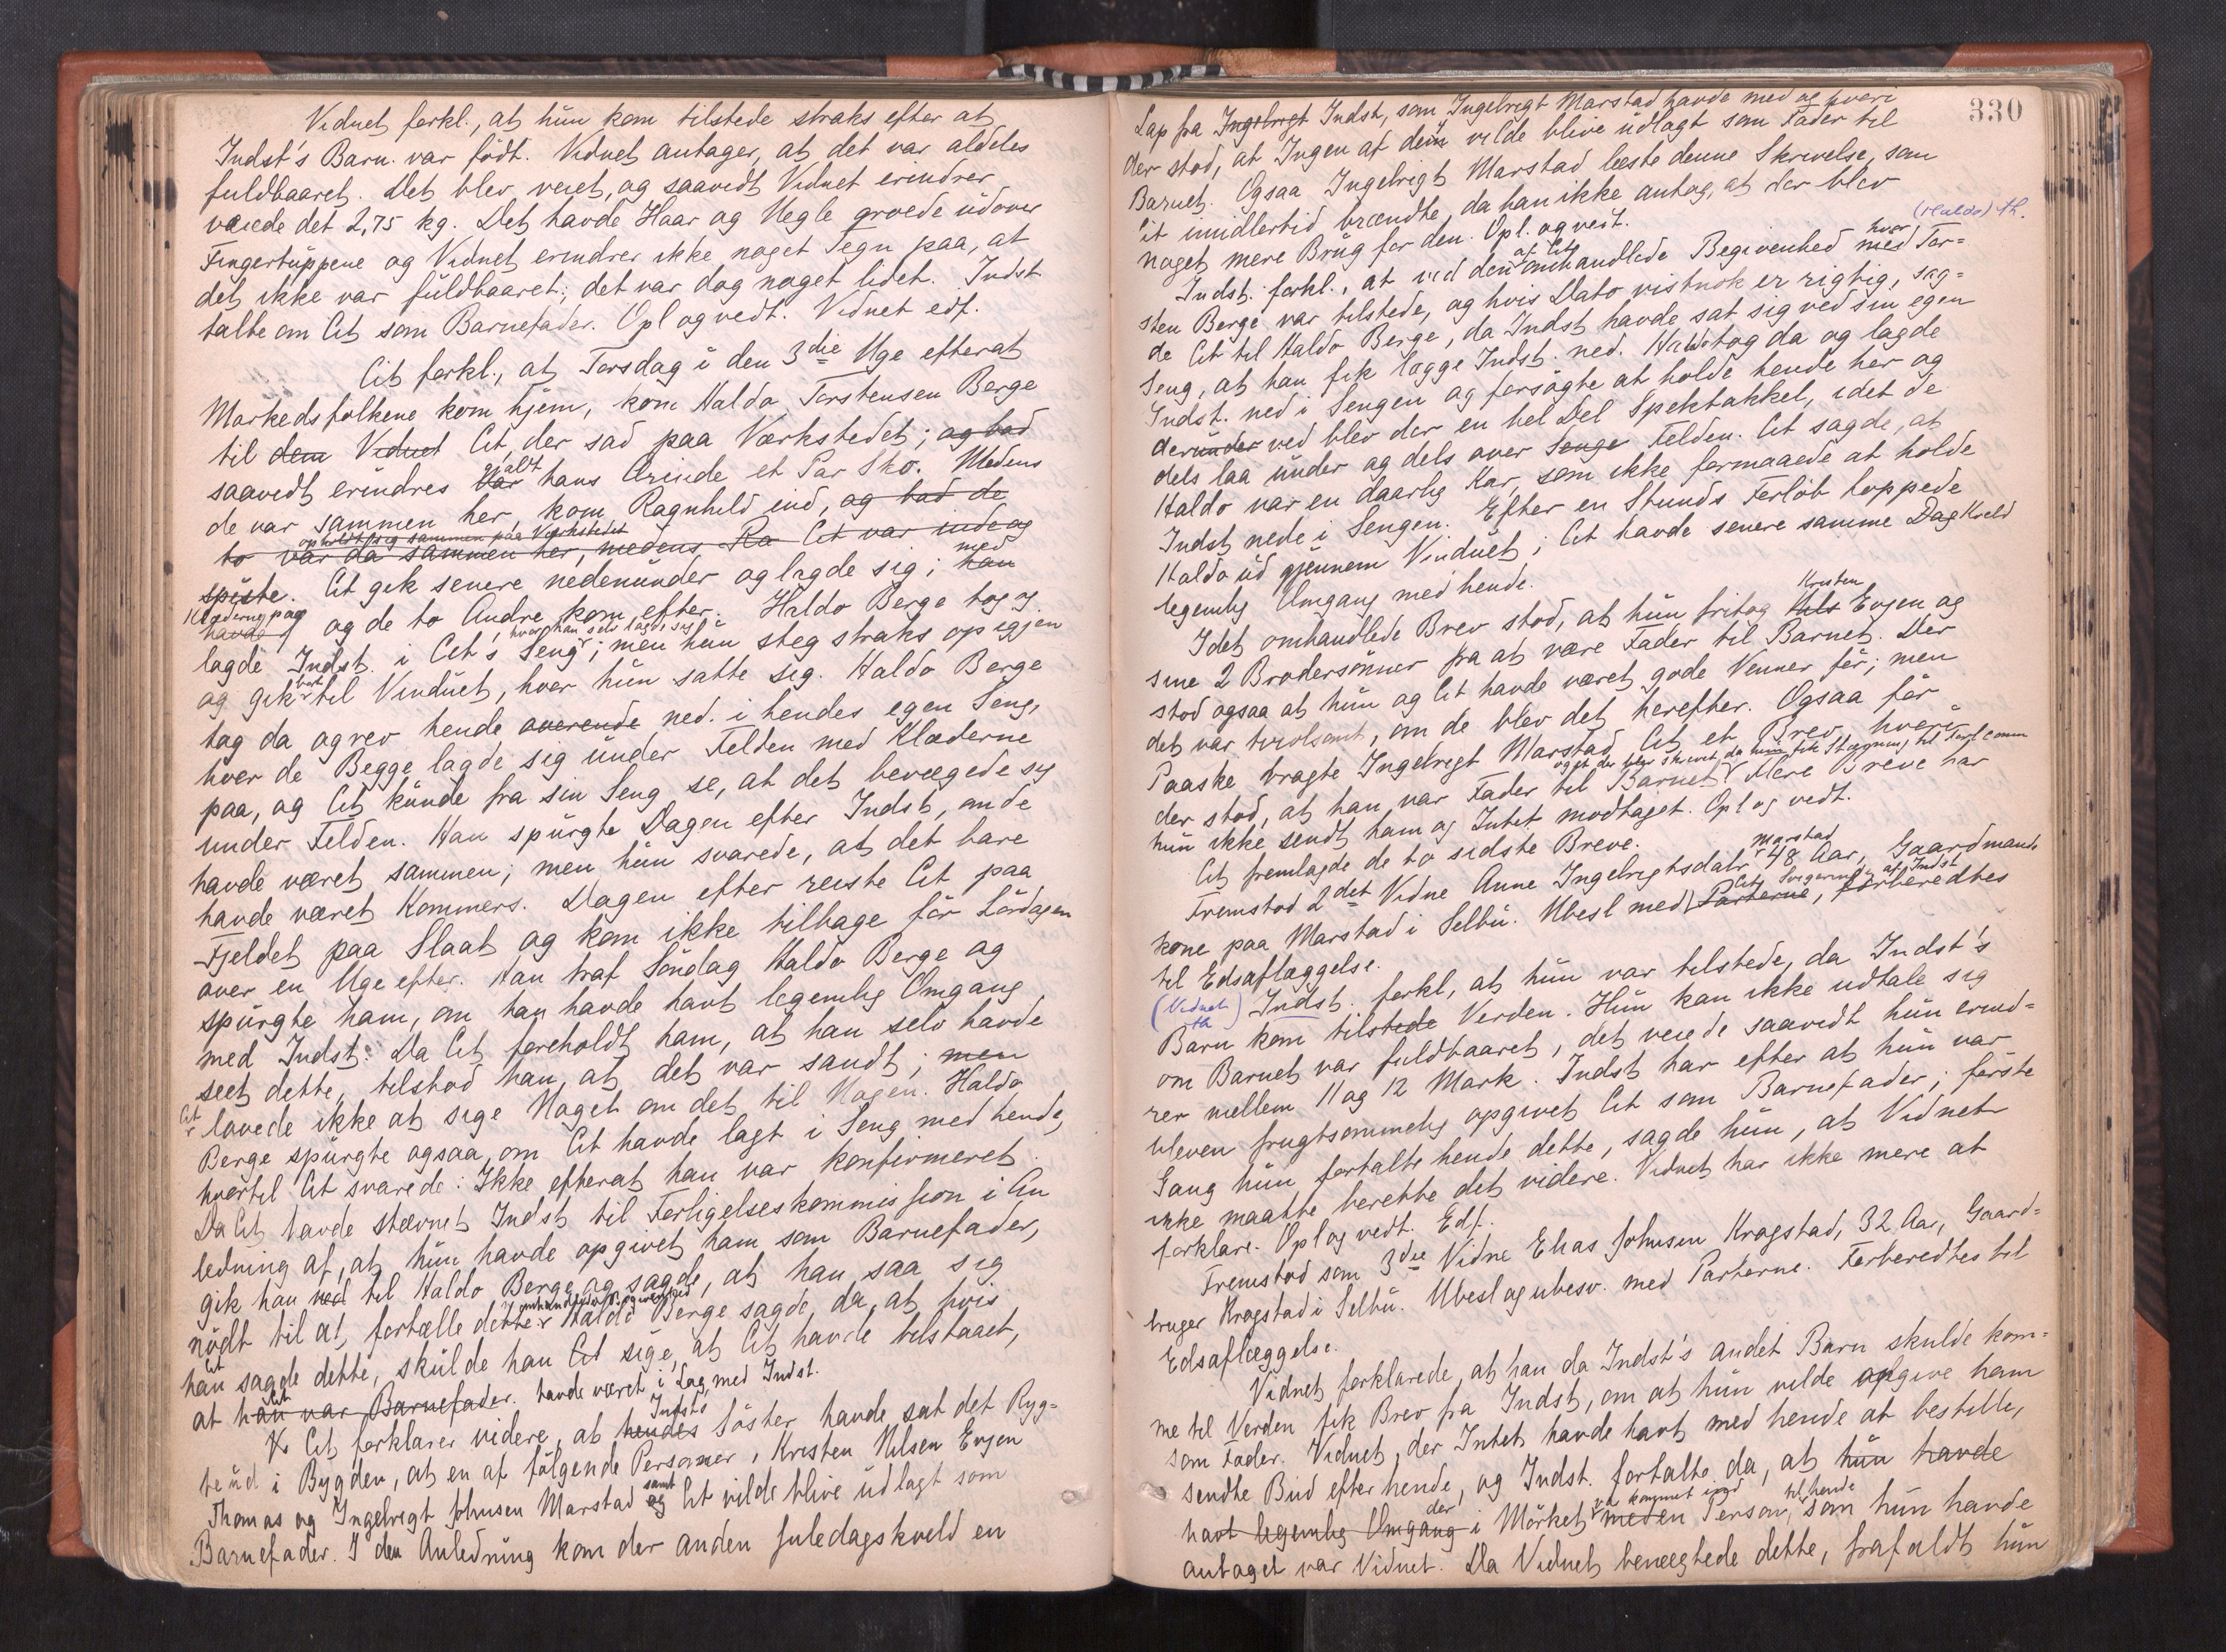 Vidnet forkl., at hun kom tilstede straks efter at
Indst's Barn var födt. Vidnet antager, at det var aldeles
fuldbaaret. Det blev veiet, og saavidt Vidnet erindrer
veiede det 2,75 kg. Det havde Haar og Negle groede udover
Fingertuppene og Vidnet erindrer ikke noget Tegn paa, at
det ikke var fuldbaaret; det var dog noget lidet. Indst
talte om Cit som Barnefader. Opl og vedt. Vidnet edf.
Cit forkl., at Torsdag i den 3die Uge efterat
Markedsfolkene kom hjem, kom Haldo Torstensen Berge
til dem Vidnet Cit, der sad paa Værkstedet; og bad
saavidt erindres var gjaldt hans Ærinde et Par Sko. Medens
de var sammen her, kom Ragnhild ind, og bad de
opholdt sig sammen paa Værkstedet
to var da sammen her, medens Ra Cit var inde og
spiste. Cit gik senere nedenunder og lagde sig; han med
Klæderne paa
havde og de to Andre kom efter. Haldo Berge tog og
lagde Indst. i Cit's Seng, hvor han selv lagde sig; men hun steg straks op igjen
og gik bort til Vinduet, hvor hun satte sig. Haldo Berge
tog da og rev hende overende ned i hendes egen Seng,
hvor de Begge lagde sig under Felden med Klæderne
paa, og Cit kunde fra sin Seng se, at det bevægede sig
under Felden. Han spurgte Dagen efter Indst, om de
havde været sammen; men hun svarede, at det bare
havde været Kommers. Dagen efter reiste Cit paa
Fjeldet paa Slaat og kom ikke tilbage för Lördagen
over en Uge efter. Han traf Söndag Haldo Berge og
spurgte ham, om han havde havt legemlig Omgang
med Indst. Da Cit foreholdt ham, at han selv havde
seet dette, tilstod han, at det var sandt; men
Cit lovede ikke at sige Noget om det til Nogen. Haldo
Berge spurgte ogsaa, om Cit havde lagt i Seng med hende,
hvortil Cit svarede: Ikke efterat han var konfirmeret.
Da Cit havde stævnet Indst til Forligelseskommission i An
ledning af, at hun havde opgivet ham som Barnefader,
gik han ned til Haldo Berge og sagde, at han saa sig
nödt til at fortælle dette omhandlede Begivenhed Haldo Berge sagde da, at hvis
han Cit sagde dette, skulde han Cit sige, at Cit havde tilstaaet,
at han Cit var Barnefader. havde været i Lag med Indst.
Cit forklarer videre, at hendes Indsts Söster havde sat det Ryg=
te ud i Bygden, at en af fölgende Personer, Kristen Nilsen Evjen
Thomas og Ingebrigt Johnsen Marstad og samt Cit vilde blive udlagt som
Barnefader. I den Anledning kom der anden Juledagskveld en
330
Lap fra Ingebrigt Indst, som Ingebrigt Marstad havde med og hvori
der stod, at Ingen af dem vilde blive udlagt som Fader til
Barnet. Ogsaa Ingebrigt Marstad læste denne Skrivelse, som
Cit imidlertid brændte, da han ikke antog, at der blev
noget mere Brug for den. Opl. og vedt.
(Haldo) th.
Indst. forkl., at ved den af Cit omhandlede Begivenhed med hvor Tor=
sten Berge var tilstede, og hvis Dato vistnok er rigtig, sag=
de Cit til Haldo Berge, da Indst havde sat sig ved sin egen
Seng, at han fik lægge Indst. ned. Haldo tog da og lagde
Indst. ned i Sengen og forsögte at holde hende her og
derunder ved blev der en hel Del Spektakkel, idet de
dels laa under og dels over Senge Felden. Cit sagde, at
Haldo var en daarlig Kar, som ikke formaaede at holde
Indst nede i Sengen. Efter en Stunds Forlöb hoppede
Haldo ud gjennem Vinduet; Cit havde senere samme Dag Kveld
legemlig Omgang med hende.
I det omhandlede Brev stod, at hun fritog Nils Kristen Evjen og
sine 2 Brodersönner fra at være Fader til Barnet. Der
stod ogsaa at hun og Cit havde været gode Venner för; men
det var tvivlsomt, om de blev det herefter. Ogsaa för
Paaske bragte Ingebrigt Marstad Cit et Brev, hvori
der stod, at han var Fader til Barnet og at der blev skrevet, da hun fik Stævning til Forl.comm Flere Breve har
hun ikke sendt ham og Intet modtaget. Opl og vedt.
Cit fremlagde de to sidste Breve.
Fremstod 2det Vidne Anne Ingebrigtsdatr Marstad 48 Aar, Gaardmands
kone paa Marstad i Selbu. Ubesl med Parterne, Cit, Svigerinde af Indst forberedtes
til Edsaflæggelse.
(Vidnet th) Indst. forkl, at hun var tilstede, da Indst's
Barn kom tilstede Verden. Hun kan ikke udtale sig
om Barnet var fuldbaaret, det veiede saavidt hun erind=
rer mellem 11 og 12 Mark. Indst har efter at hun var
bleven frugtsommelig opgivet Cit som Barnefader; förste
Gang hun fortalte hende dette, sagde hun, at Vidnet
ikke maatte berette det videre. Vidnet har ikke mere at
forklare. Opl og vedt. Edf.
Fremstod som 3die Vidne Elias Johnsen Kragstad, 32 Aar, Gaard=
bruger Kragstad i Selbu. Ubesl og ubesv. med Parterne. Forberedtes til
Edsaflæggelse.
Vidnet forklarede, at han da Indst's andet Barn skulde kom=
me til Verden fik Brev fra Indst, om at hun vilde opgive ham
som Fader. Vidnet, der Intet havde havt med hende at bestille,
sendte Bud efter hende, og Indst. fortalte da, at hun havde
havt legemlig Omgang der i Mörket var kommet ind med en Person, til hende som hun havde
antaget var Vidnet. Da Vidnet benægtede dette, frafaldt hun